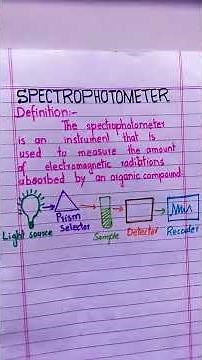 SPECTROPHOTOMETER
Definition:-
The spectrophotometer
is an instrument that is
used to measure the amount
of electromagnetic radiations
absorbed by an organic compound.
Light source
Prism
Selector
Sample
Detector
Recoder